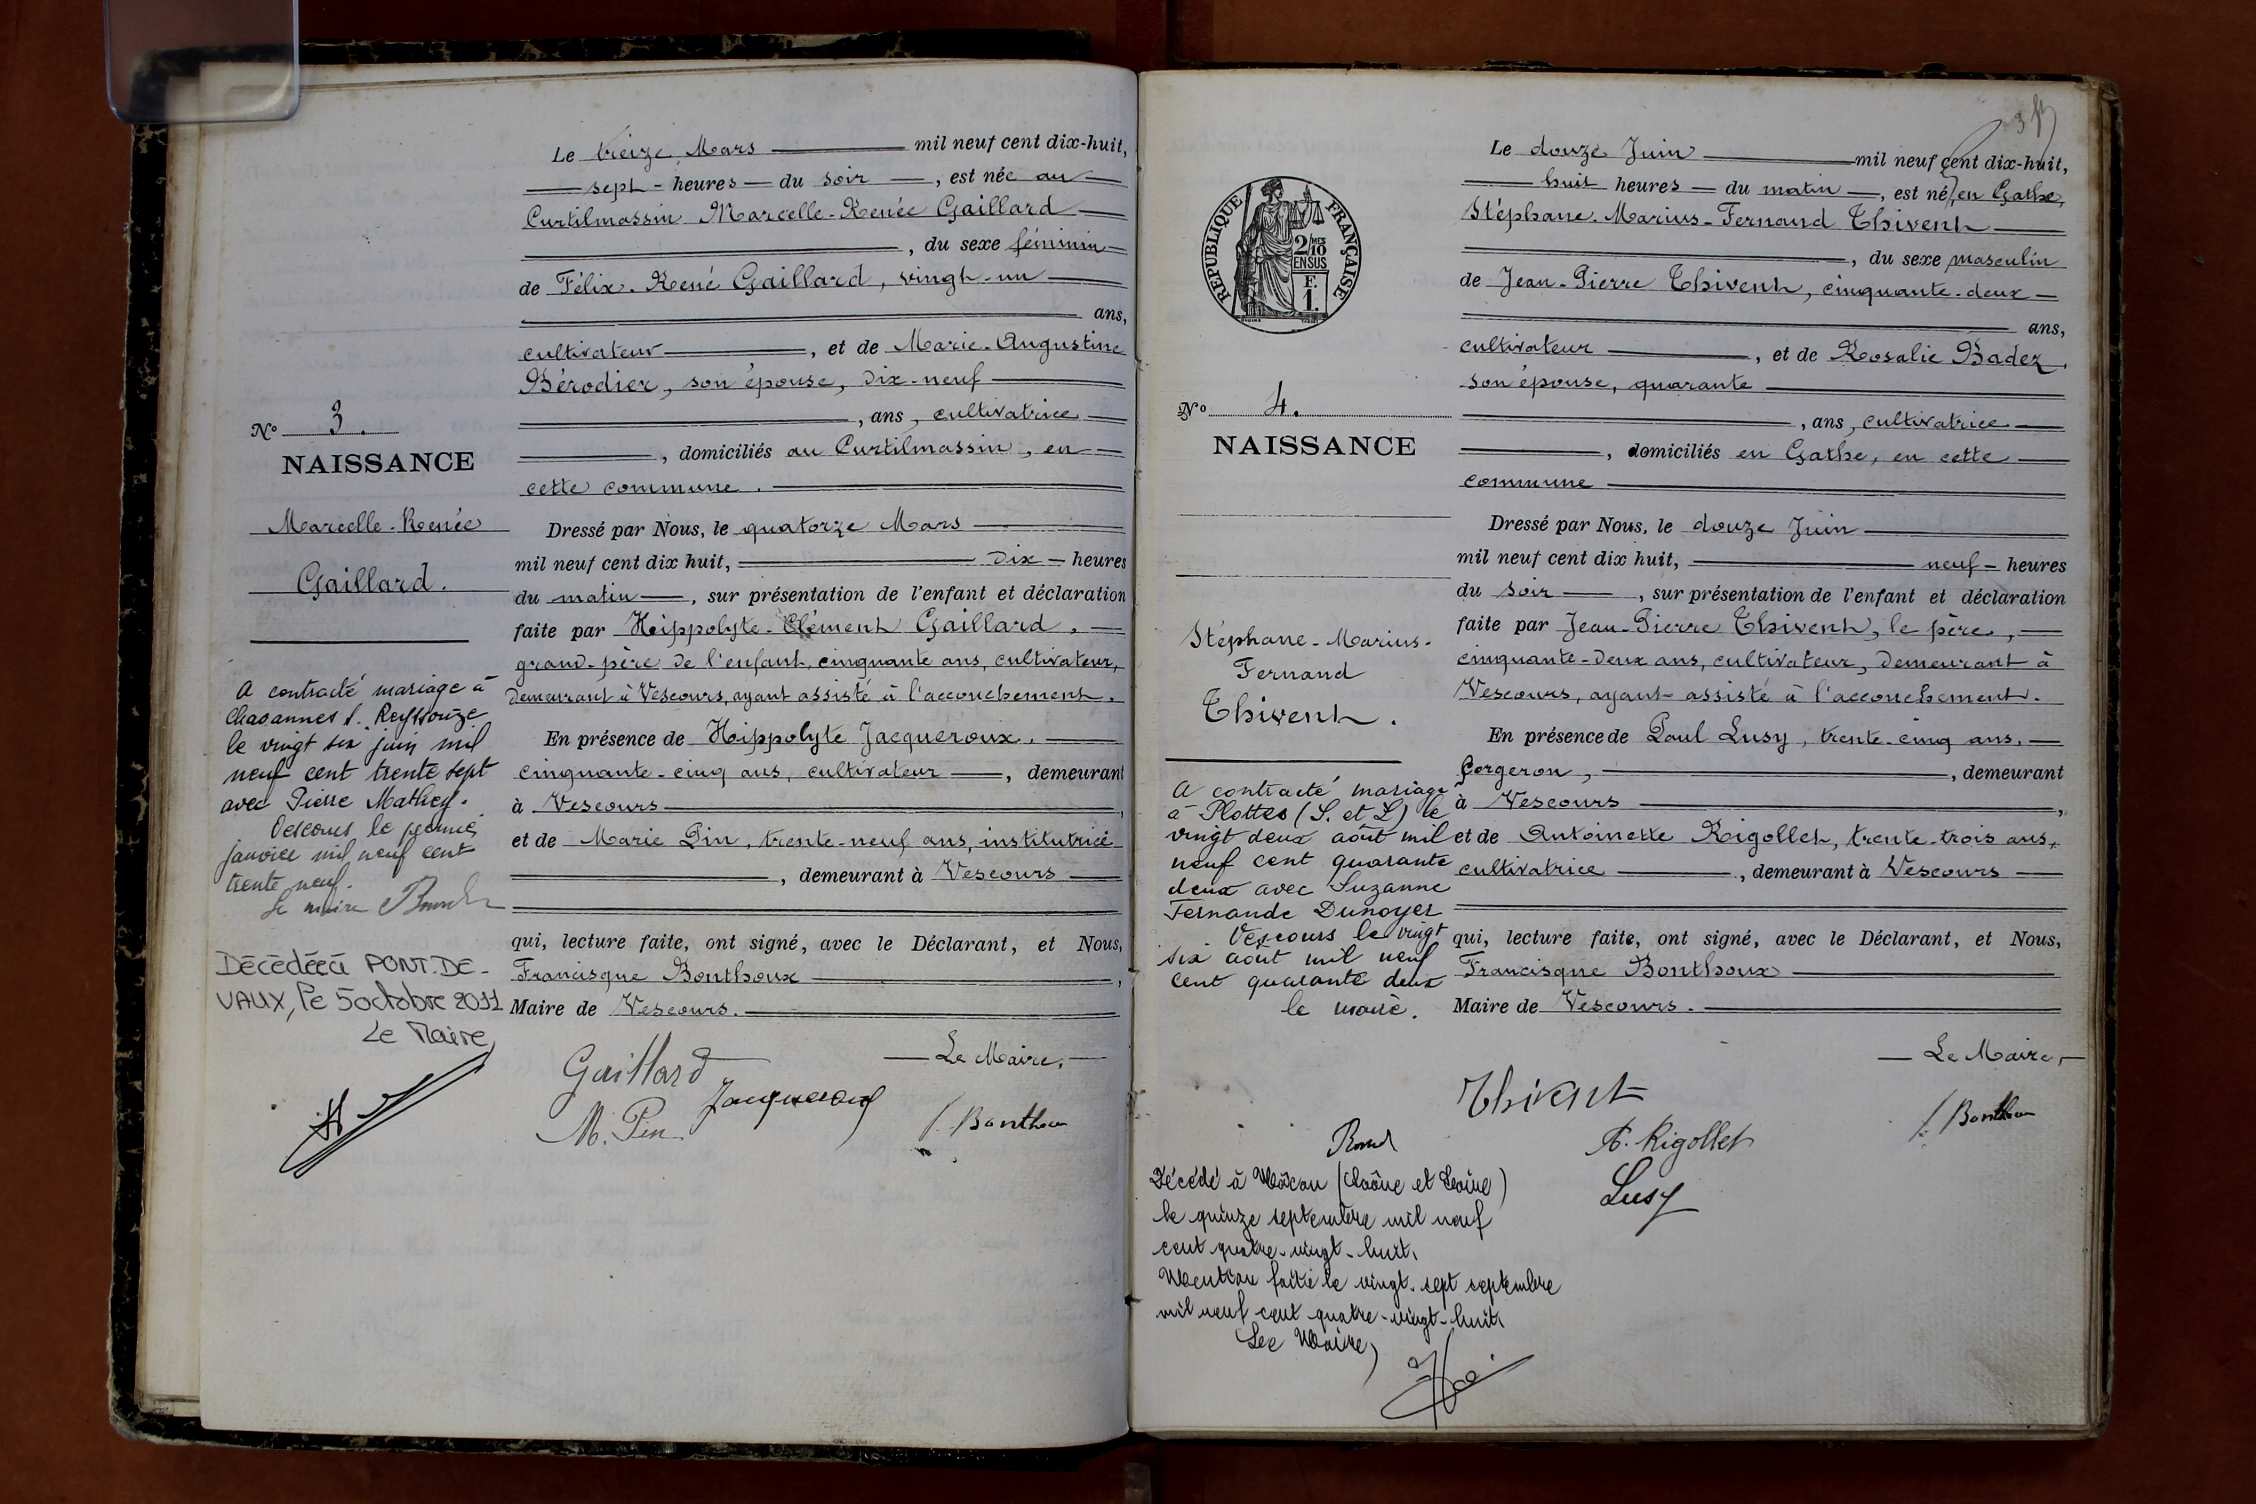 Le treize Mars mil neuf cent dix-huit,
sept - heures - du soir, est née au
Curtilmassin Marcelle-Renée Gaillard
, du sexe féminin
de Félix-René Gaillard, vingt-un
ans,
cultivateur, et de Marie-Augustine
Bérodier, son épouse, dix-neuf
, ans, cultivatrice
, domiciliés au Curtilmassin, en
cette commune.
Dressé par Nous, le quatorze Mars
mil neuf cent dix huit, dix - heures
du matin, sur présentation de l'enfant et déclaration
faite par Hippolyte-Clément Gaillard,
grand-père de l'enfant, cinquante ans, cultivateur,
demeurant à Vescours, ayant assisté à l'accouchement.
En présence de Hippolyte Jacqueroux,
cinquante-cinq ans, cultivateur, demeurant
à Vescours,
et de Marie Pin, trente-neuf ans, institutrice
, demeurant à Vescours
qui, lecture faite, ont signé, avec le Déclarant, et Nous,
Francisque Bonthoux,
Maire de Vescours.
Le Maire,
Gaillard
Jacqueroux
M. Pin
f. Bonthoux
No 3.
NAISSANCE
Marcelle-Renée
Gaillard.
A contracté mariage à
Chavannes s. Reyssouze
le vingt six juin mil
neuf cent trente sept
avec Pierre Mathey.
Vescours le premier
janvier mil neuf cent
trente neuf.
Le maire
Décédée à PONT-DE-
VAUX, le 5 octobre 2011
Le Maire,
Le douze Juin mil neuf cent dix-huit,
huit heures - du matin, est né, en Gathe,
Stéphane-Marius-Fernand Thivent
, du sexe masculin
de Jean-Pierre Thivent, cinquante-deux
ans,
cultivateur, et de Rosalie Badez,
son épouse, quarante
, ans, cultivatrice
, domiciliés en Gathe, en cette
commune
Dressé par Nous, le douze Juin
mil neuf cent dix huit, neuf - heures
du soir, sur présentation de l'enfant et déclaration
faite par Jean-Pierre Thivent, le père,
cinquante-deux ans, cultivateur, demeurant à
Vescours, ayant assisté à l'accouchement.
En présence de Paul Lusy, trente-cinq ans,
forgeron, demeurant
à Vescours,
et de Antoinette Rigollet, trente-trois ans,
cultivatrice, demeurant à Vescours
qui, lecture faite, ont signé, avec le Déclarant, et Nous,
Francisque Bonthoux
Maire de Vescours.
Le Maire,
Thivent
A. Rigollet
Lusy
f. Bonthoux
RÉPUBLIQUE FRANÇAISE
2/10 MES
EN SUS
F.
1.
No 4.
NAISSANCE
Stéphane-Marius-
Fernand
Thivent.
A contracté mariage
à Plottes (S. et L) le
vingt deux août mil
neuf cent quarante
deux avec Suzanne
Fernande Dunoyer
Vescours le vingt
six août mil neuf
cent quarante deux
le maire.
Décédé à Mâcon (Saône et Loire)
le quinze septembre mil neuf
cent quatre-vingt-huit.
Mention faite le vingt-sept septembre
mil neuf cent quatre-vingt-huit.
Le Maire,